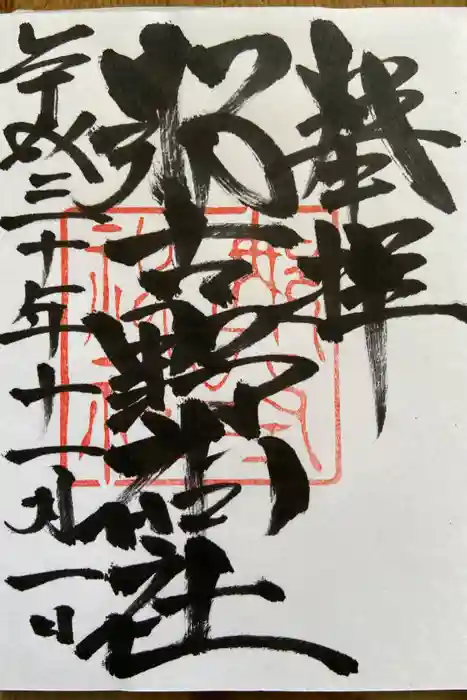 奉拝
那古野神社
平成三十年十一月一日